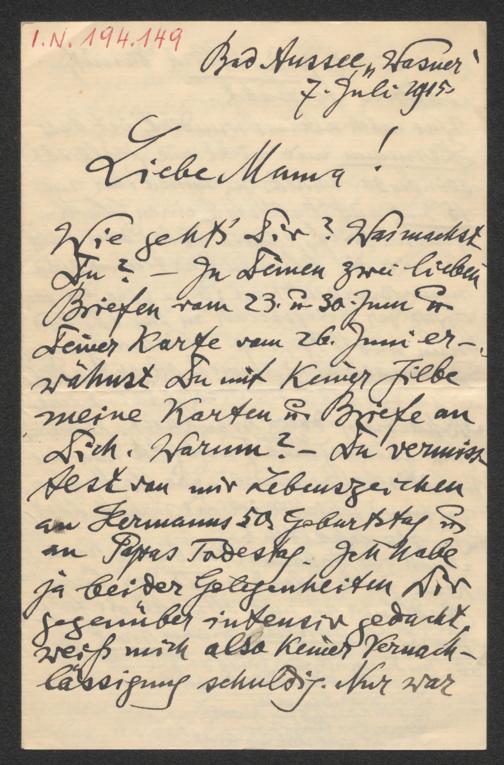 I.N. 194.149
Bad Aussee, „Wasner“
7. Juli 1915
Liebe Mama!
Wie geht's Dir? Was machst
Du? – In Deinen zwei lieben
Briefen vom 23. u 30. Juni u
Deiner Karte vom 26. Juni er-
wähnst Du mit keiner Silbe
meine Karten u Briefe an
Dich. Warum? – Du vermiss
test von mir Lebenszeichen
an Hermanns 50. Geburtstag u
an Papas Todestag. Ich habe
ja beider Gelegenheiten Dir
gegenüber intensiv gedacht,
weiß mich also keiner Vernach-
lässigung schuldig. Nur war